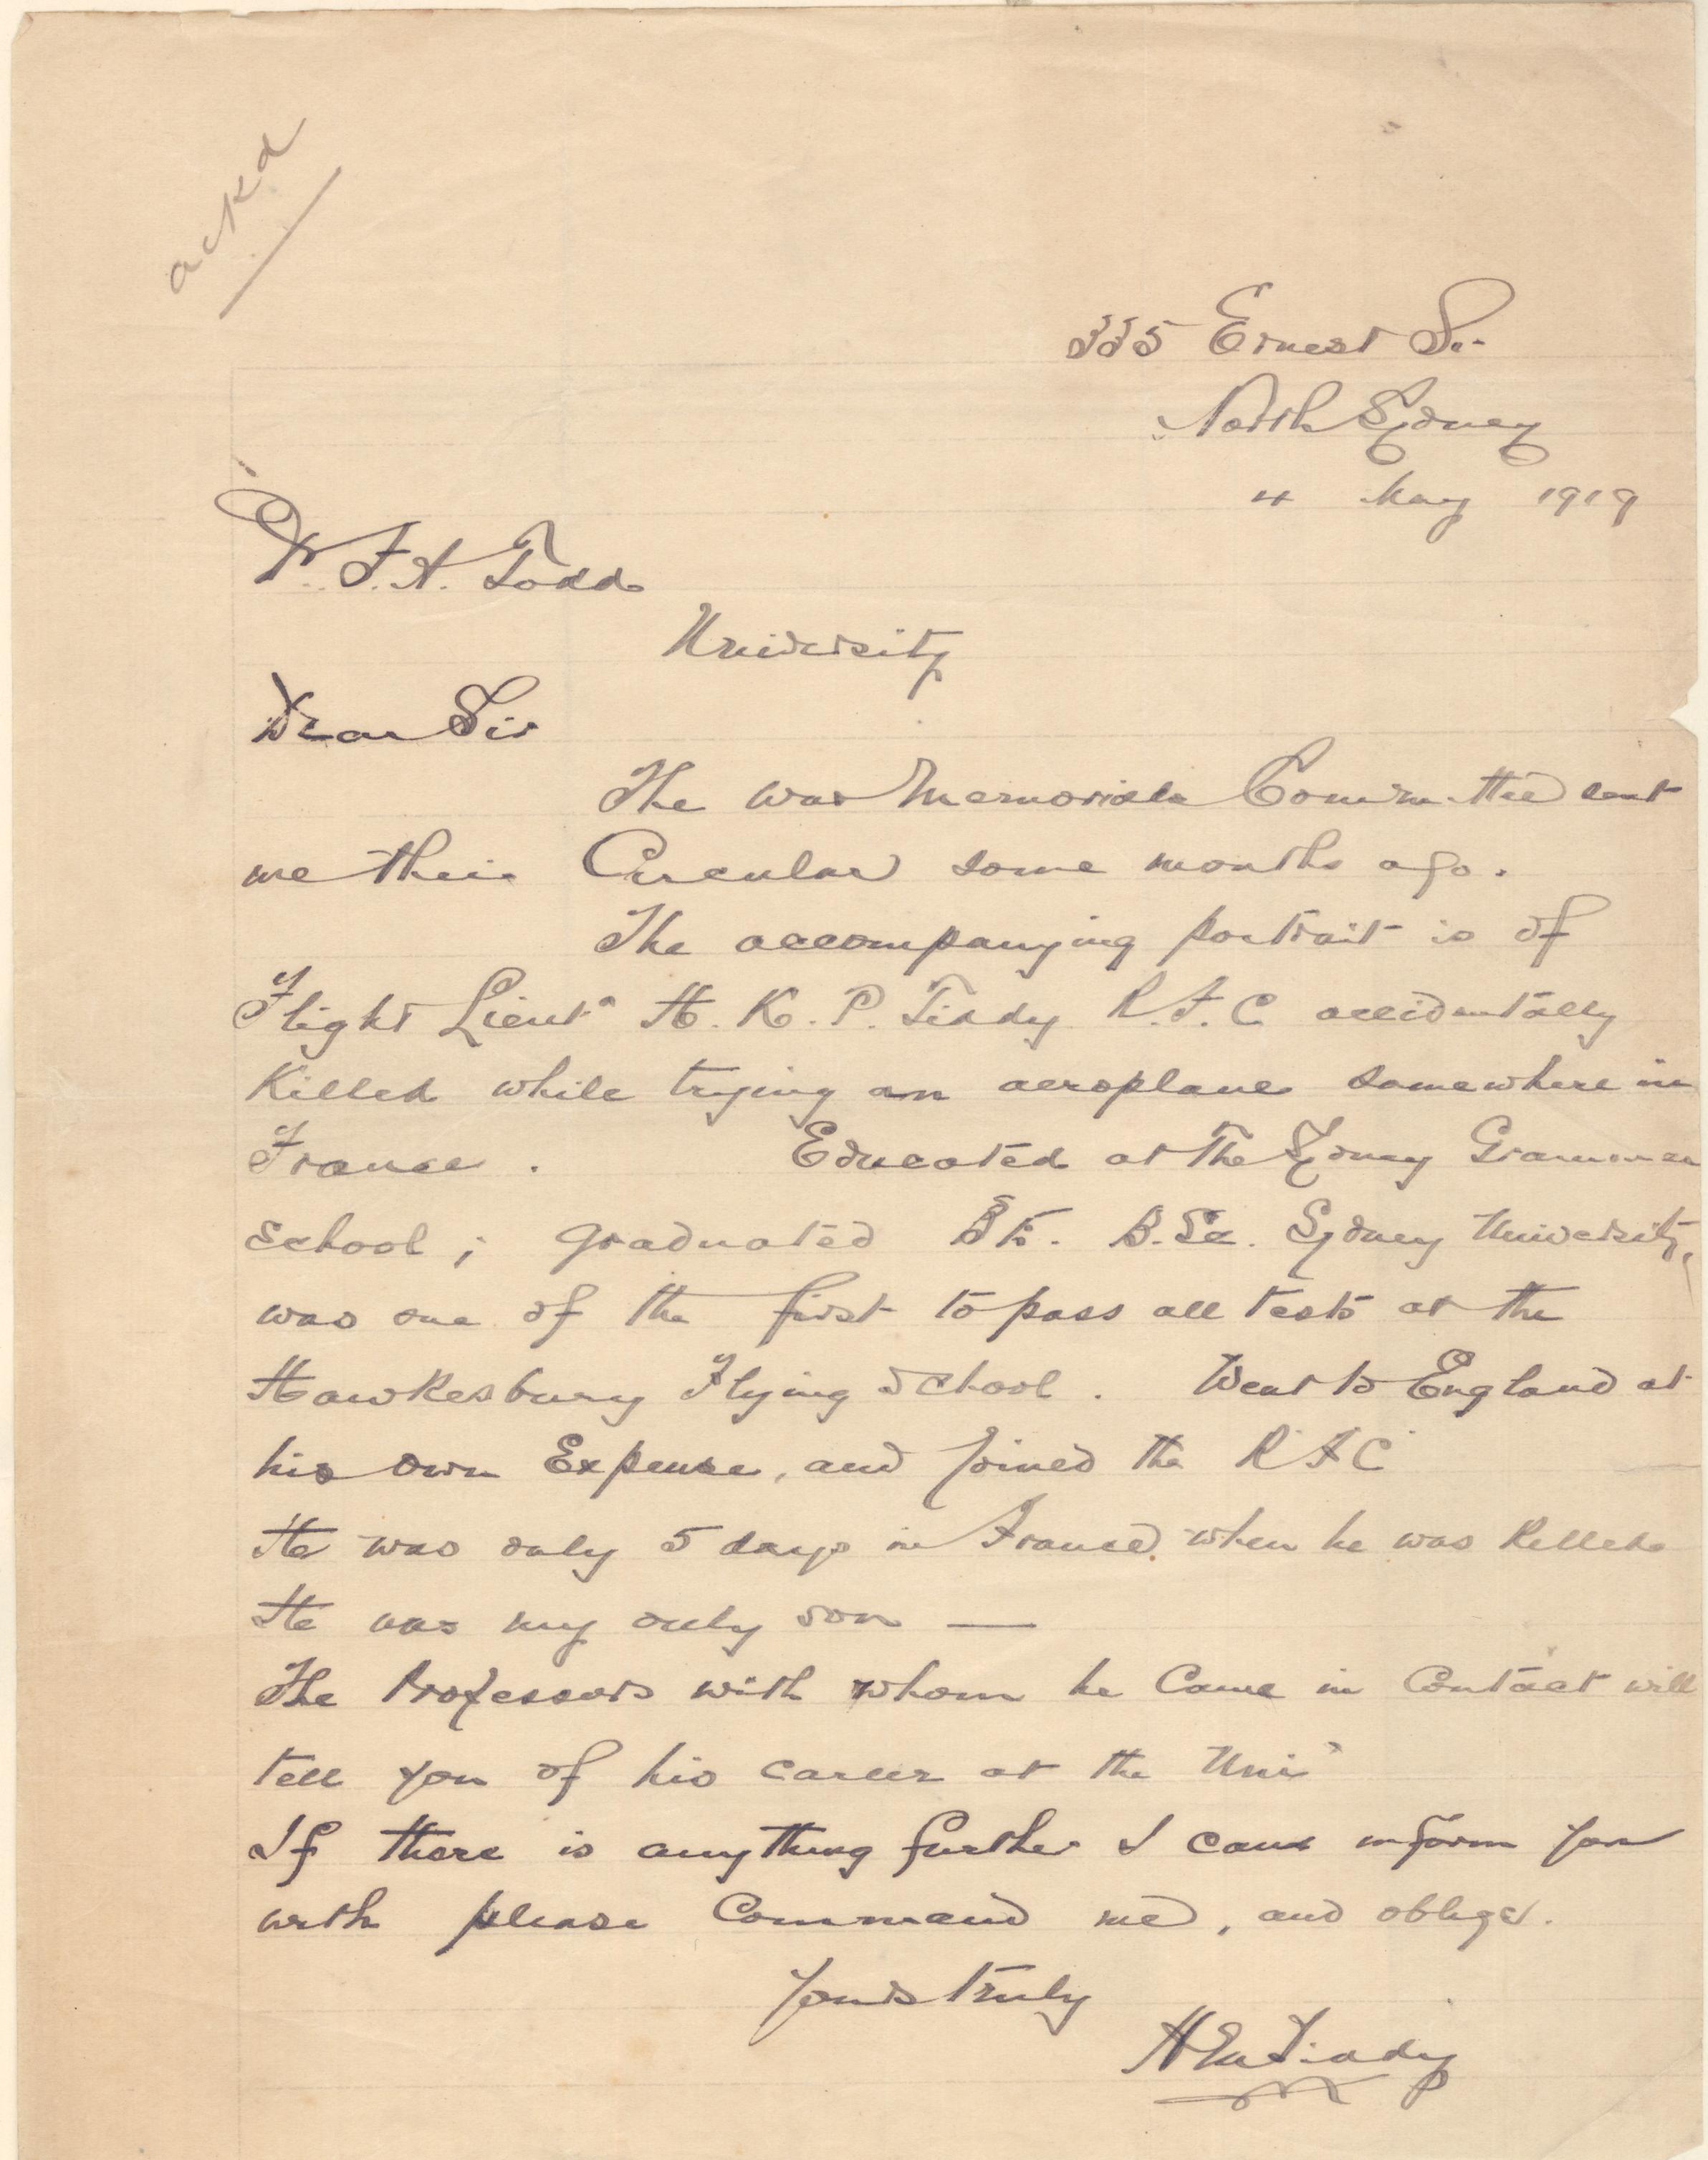 ackd
335 Ernest St.
North Sydney
4 May 1919
Dr. F. A. Todd
University
Dear Sir
The war Memorials Committee sent
me their Circular some months ago.
The accompanying portrait is of
Flight Lieut. H. K. P. Tiddy R.F.C. accidentally
Killed while trying an aeroplane somewhere in
France. Educated at the Sydney Grammar
School; graduated B.E. B.Sc. Sydney University,
was one of the first to pass all tests at the
Hawkesbury Flying School. Went to England at
his own Expense, and joined the R F C
He was only 5 days in France when he was killed
He was my only son —
The Professors with whom he Came in Contact will
tell you of his career at the Uni
If there is anything further I can inform you
with please Command me, and oblige.
Yours truly
Tiddy